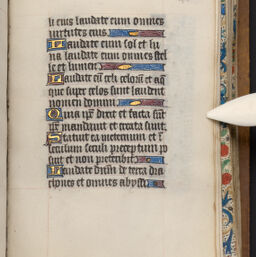 li eius laudate eum omnes
virtutes eius
Laudate eum sol et lu
na laudate eum omnes stel
le et lumen
Laudate eū celi celorū et aq̄
que super celos sunt laudent
nomen domini
Quia ip̄e dixit et facta sūt
ip̄e mandauit et creata sunt
Statuit ea in eternum et ī
seculum seculi preceptum po
suit et non preteribit
Laudate dn̄m de terra dra
cones et omnes abyssi